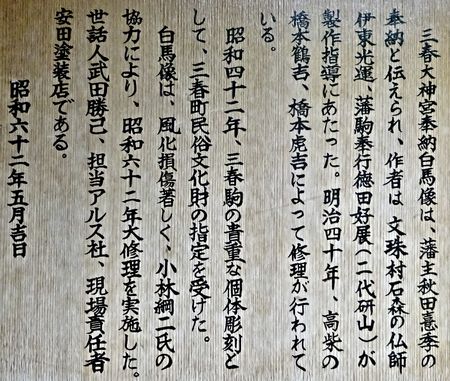 三春大神宮奉納白馬像は、藩主秋田憙季の
奉納と伝えられ、作者は 文珠村石森の仏師
伊東光運、藩駒奉行徳田好展(二代研山)が
製作指導にあたった。明治四十年、高柴の
橋本鶴吉、橋本虎吉によって修理が行われて
いる。
昭和四十二年、三春駒の貴重な個体彫刻と
して、三春町民俗文化財の指定を受けた。
白馬像は、風化損傷著しく、小林綱二氏の
協力により、昭和六十二年大修理を実施した。
世話人武田勝己、担当アルス社、現場責任者
安田塗装店である。
昭和六十二年五月吉日